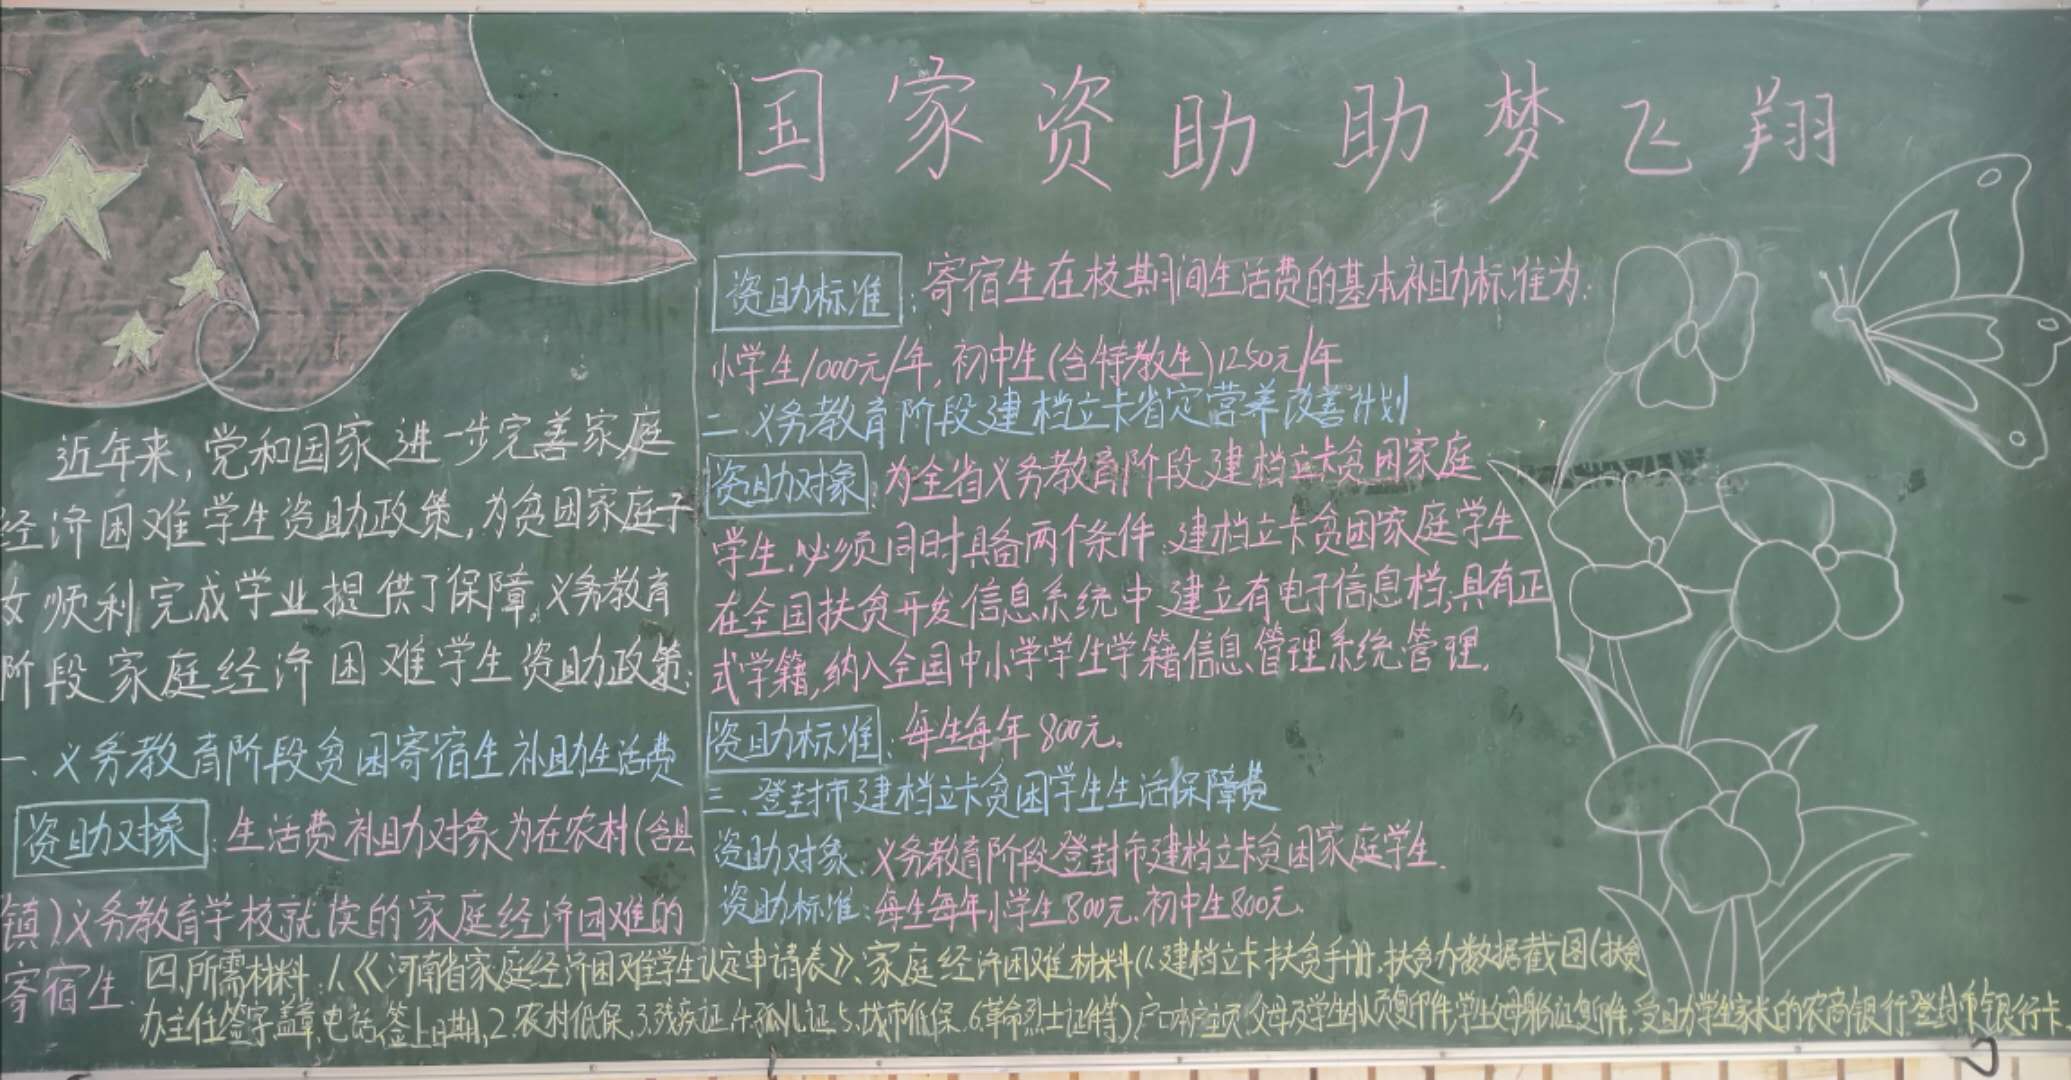 国家资助 助梦飞翔
近年来,党和国家进一步完善家庭
经济困难学生资助政策,为贫困家庭子
女顺利完成学业提供了保障。义务教育
阶段家庭经济困难学生资助政策:
一、义务教育阶段贫困寄宿生补助生活费
资助对象:生活费补助对象为在农村(含县
镇)义务教育学校就读的家庭经济困难的
寄宿生.
资助标准:寄宿生在校期间生活费的基本补助标准为:
小学生1000元/年,初中生(含特教生)1250元/年
二、义务教育阶段建档立卡省定营养改善计划
资助对象:为全省义务教育阶段建档立卡贫困家庭
学生,必须同时具备两个条件:建档立卡贫困家庭学生
在全国扶贫开发信息系统中建立有电子信息档,具有正
式学籍,纳入全国中小学学生学籍信息管理系统管理.
资助标准:每生每年800元.
三、登封市建档立卡贫困学生生活保障费
资助对象:义务教育阶段登封市建档立卡贫困家庭学生.
资助标准:每生每年小学生800元.初中生800元.
四.所需材料:1.《河南省家庭经济困难学生认定申请表》、家庭经济困难材料(1.建档立卡扶贫手册.扶贫办数据截图(扶贫
办主任签字盖章,电话,签上日期),2.农村低保.3.残疾证.4.孤儿证5.城市低保.6.革命烈士证等).户口本户主页,父母及学生页复印件,学生父母身份证复印件,受助学生家长的农商银行登封市银行卡